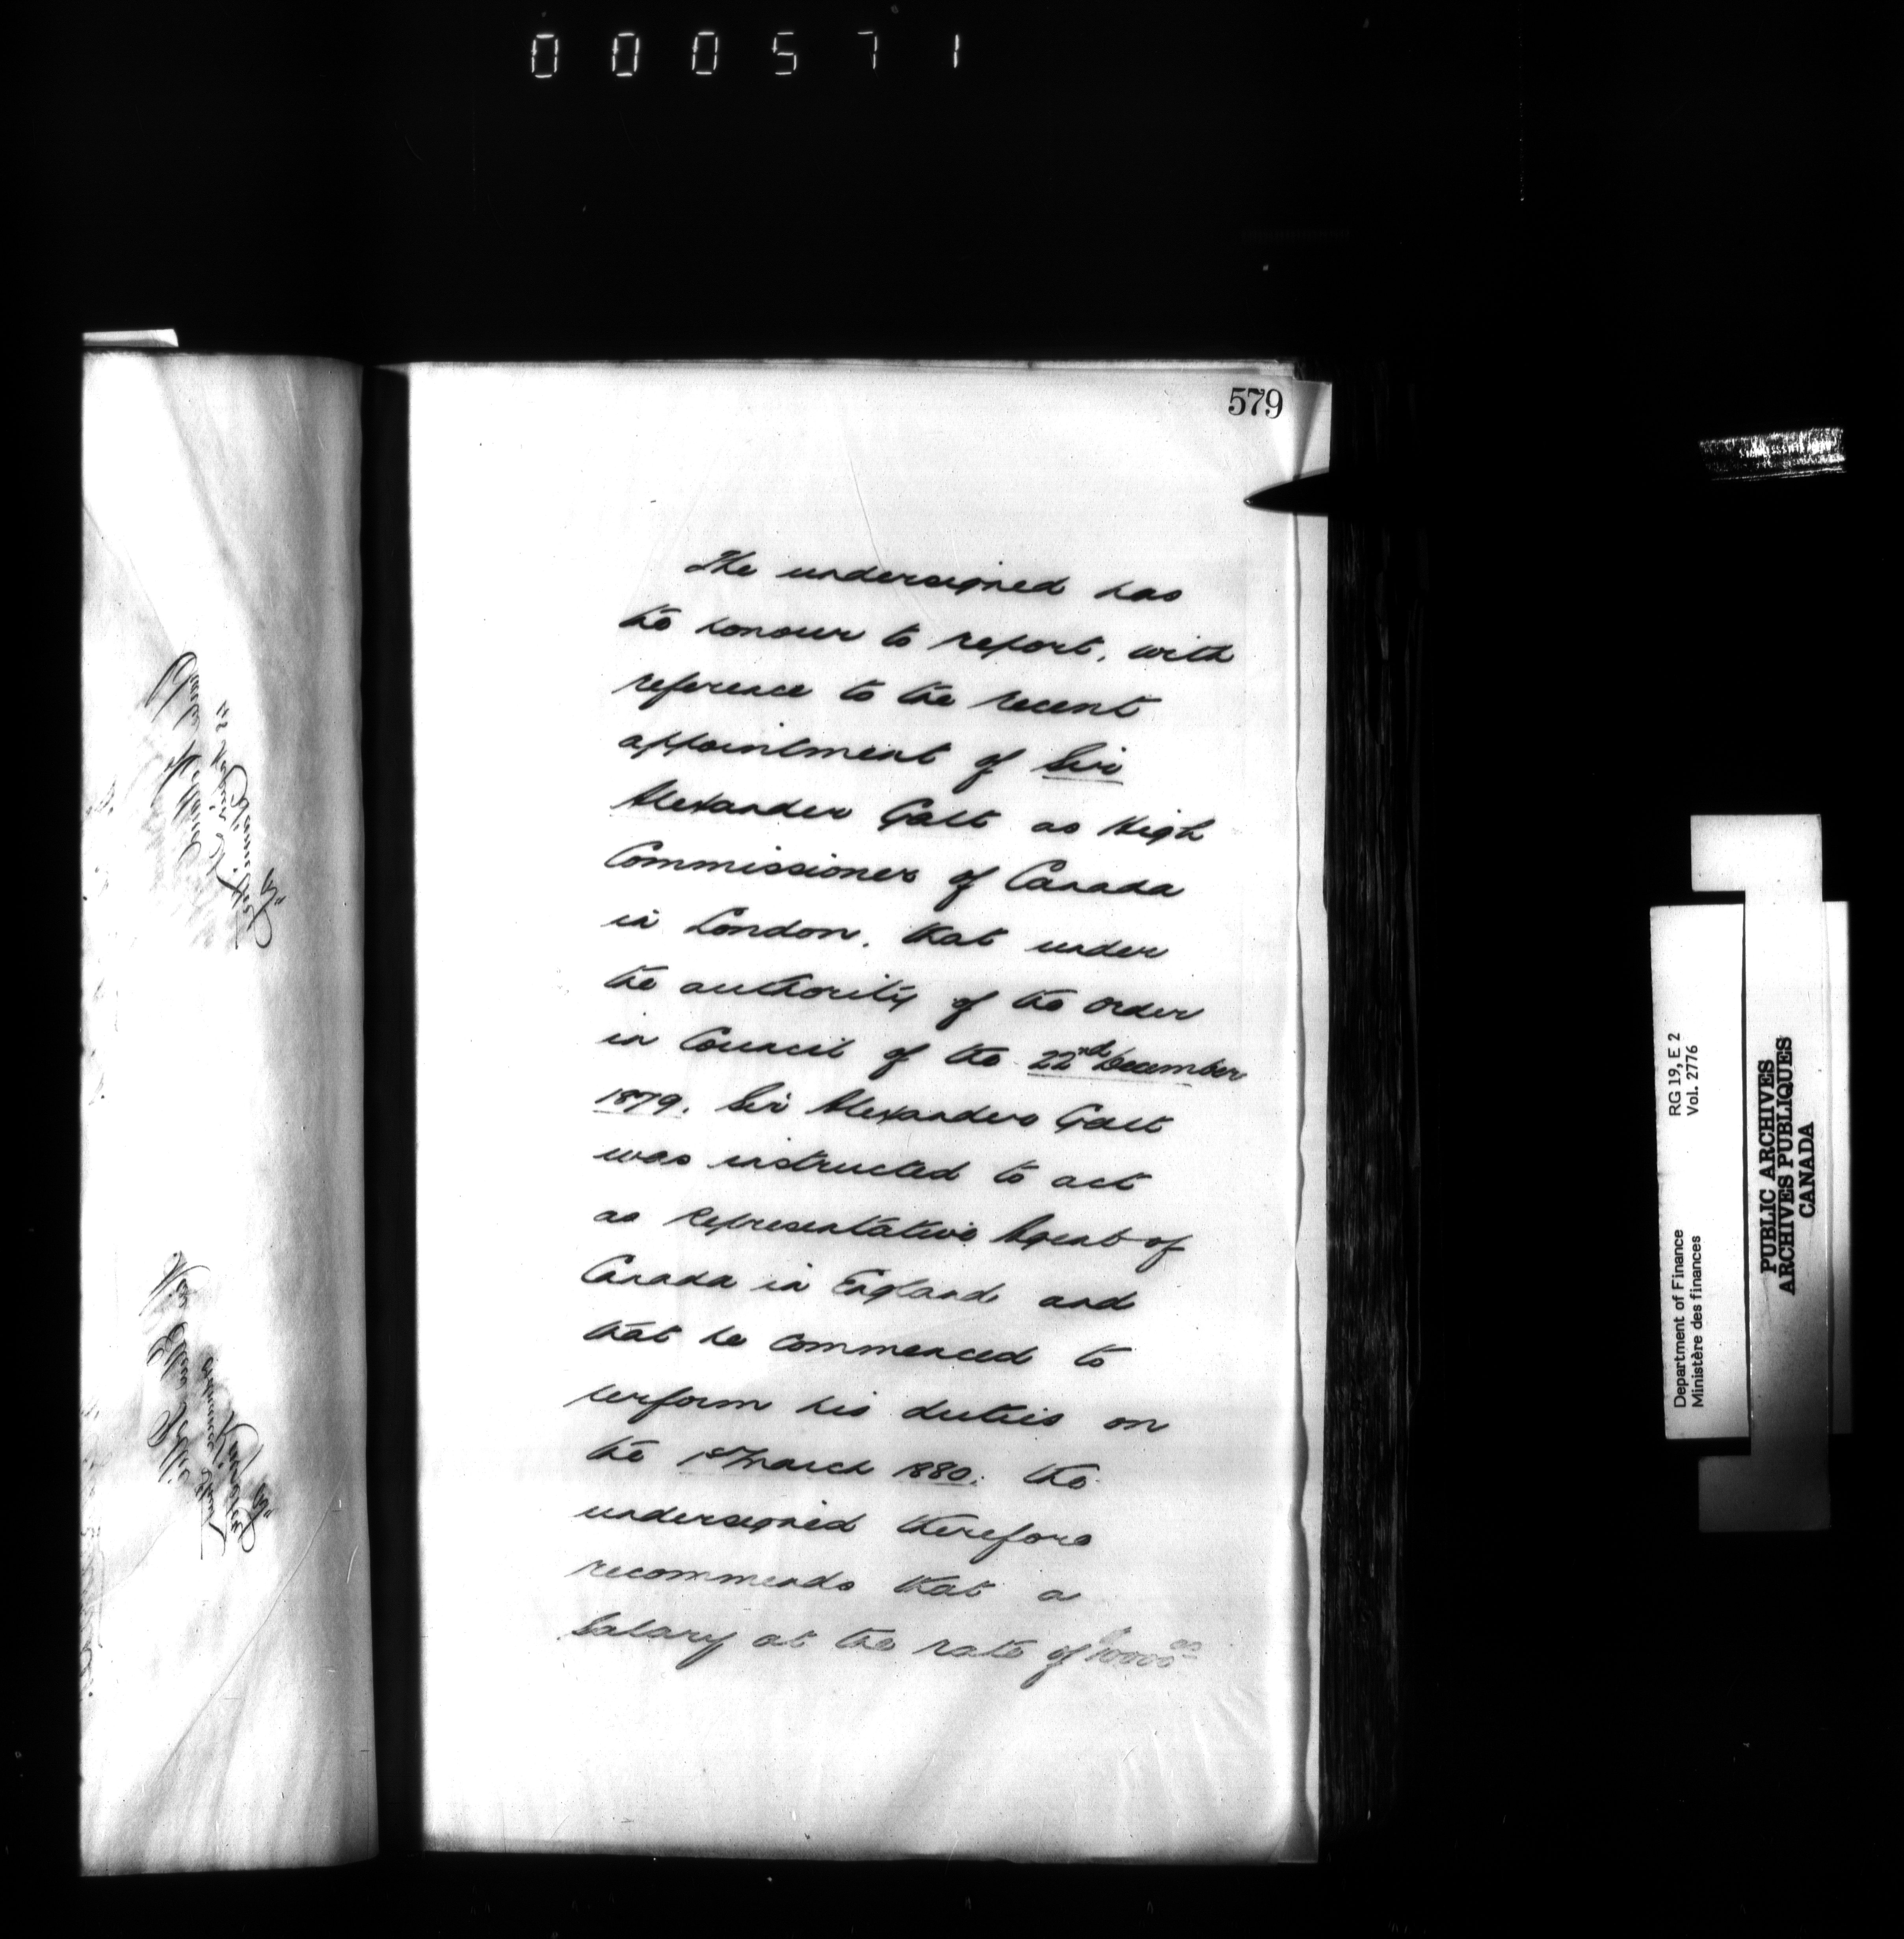 000571
579
The undersigned has
the honour to report, with
reference to the recent
appointment of Sir
Alexander Galt as High
Commissioner of Canada
in London, that under
the authority of the Order
in Council of the 22nd December
1879, Sir Alexander Galt
was instructed to act
as Representative Agent of
Canada in England and
that he commenced to
perform his duties on
the 1st March 1880. The
undersigned therefore
recommends that a
Salary at the rate of $10000
Department of Finance RG 19, E 2
Ministère des finances Vol. 2776
PUBLIC ARCHIVES
ARCHIVES PUBLIQUES
CANADA